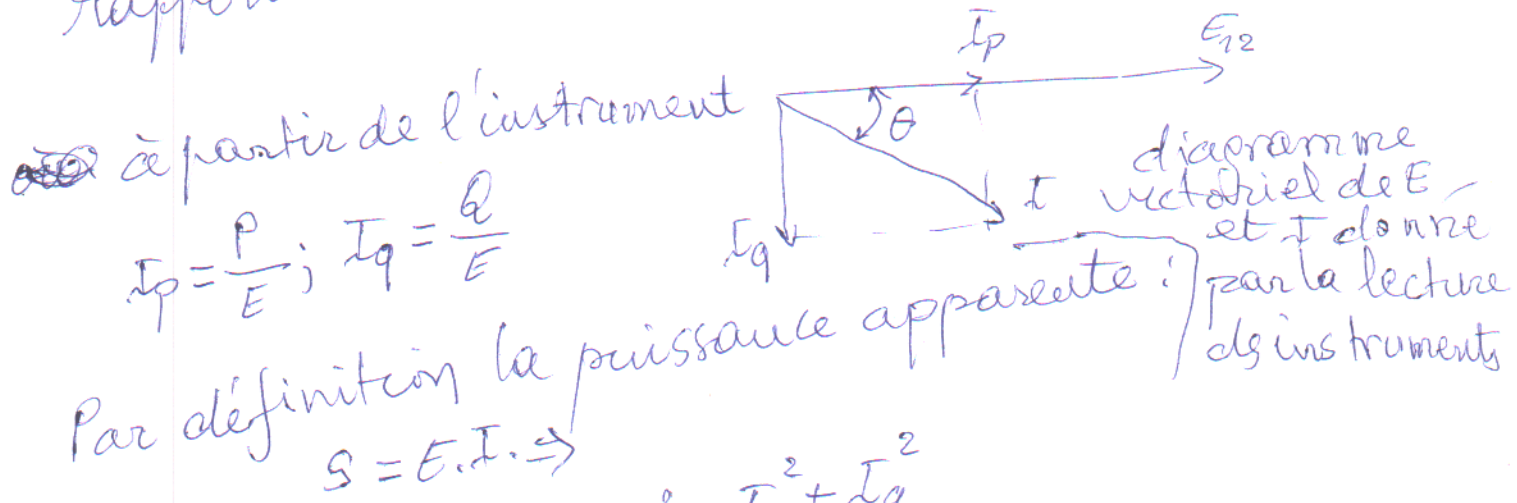 à partir de l'instrument
Ip = P/E ; Iq = Q/E
Ip
E12
θ
I
Iq
diagramme
vectoriel de E
et I donné
par la lecture
ds instruments
Par définition la puissance apparente :
S = E.I. ⇒
I² + Iq²